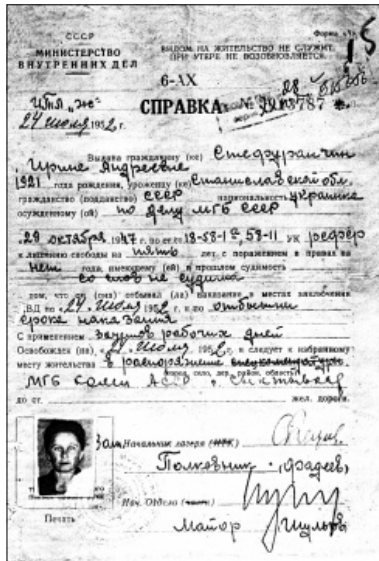 СССР
МИНИСТЕРСТВО
ВНУТРЕННИХ ДЕЛ
Форма
15
ВИДОМ НА ЖИТЕЛЬСТВО НЕ СЛУЖИТ.
ПРИ УТЕРЕ НЕ ВОЗОБНОВЛЯЕТСЯ.
6-АХ
СПРАВКА №
24 июля 1952 г.
Выдана гражданину (ке) Стефуранчин
Ирине Андреевне
1921 года рождения, уроженцу (ке) Станиславской обл.
гражданство (подданство) СССР национальность украинка
осужденному (ой) по делу МГБ СССР
29 октября 1947 г. по ст. 18-58-1а, 58-11 УК РСФСР
к лишению свободы на пять лет, с поражением в правах на
нет года, имеющему (ей) в прошлом судимость
со слов не судима
том, что он (она) отбывал (ла) наказание в местах заключения
МВД по 24 июля 1952 г. и по отбытии
срока наказания
С применением зачетов рабочих дней
Освобожден (на) 24 июля 1952 г. и следует к избранному
месту жительства в распоряжение
МГБ Коми АССР г. Сыктывкар
до ст. жел. дороги.
Зам. Начальник лагеря
Полковник (Фадеев)
Нач. Отдела (части)
Майор
Печать